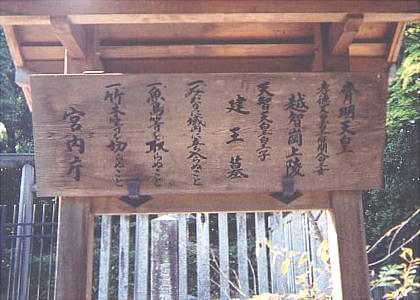 齊明天皇
孝徳天皇皇后間人皇女
越智崗上陵
天智天皇皇子
建王墓
一みだりに域内に立入らぬこと
一魚鳥等を取らぬこと
一竹木等を切らぬこと
宮内庁